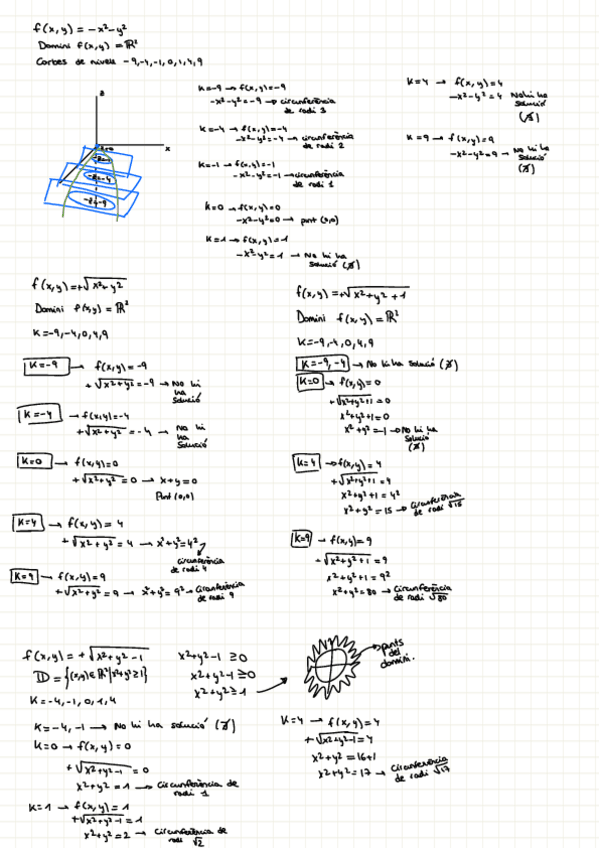 f(x,y) = -x²-y²
Domini f(x,y) = ℝ²
Corbes de nivell -9,-4,-1,0,1,4,9
z
x
k=-9 → f(x,y)=-9
-x²-y²=-9 → circunferència
de radi 3
k=-4 → f(x,y)=-4
-x²-y²=-4 → circunferència
de radi 2
k=-1 → f(x,y)=-1
-x²-y²=-1 → circunferència
de radi 1
k=0 → f(x,y)=0
-x²-y²=0 → punt (0,0)
k=1 → f(x,y)=1
-x²-y²=1 → No hi ha
solució (∄)
k=4 → f(x,y)=4
-x²-y²=4 No hi ha
solució
(∄)
k=9 → f(x,y)=9
-x²-y²=9 → No hi ha
solució
(∄)
f(x,y)=+√x²+y²
Domini f(x,y) = ℝ²
k=-9,-4,0,4,9
k=-9 → f(x,y)=-9
+√x²+y² = -9 → No hi
ha
solució
k=-4 → f(x,y)=-4
+√x²+y² = -4 → No hi
ha
solució
k=0 → f(x,y)=0
+√x²+y² = 0 → x+y=0
Punt (0,0)
k=4 → f(x,y)=4
+√x²+y² = 4 → x²+y²=4²
circunferència
de radi 4
k=9 → f(x,y)=9
+√x²+y² = 9 → x²+y²=9² → Circunferència
de radi 9
f(x,y)=+√x²+y²+1
Domini f(x,y) = ℝ²
k=-9,-4,0,4,9
k=-9,-4 → No hi ha solució (∄)
k=0 → f(x,y)=0
+√x²+y²+1=0
x²+y²+1=0
x²+y²=-1 → No hi ha
solució
(∄)
k=4 → f(x,y)=4
+√x²+y²+1=4
x²+y²+1=4²
x²+y²=15 → Circunferència
de radi √15
k=9 → f(x,y)=9
+√x²+y²+1=9
x²+y²+1=9²
x²+y²=80 → Circunferència
de radi √80
f(x,y)=+√x²+y²-1
D={(x,y)∈ℝ²|x²+y²≥1}
k=-4,-1,0,1,4
x²+y²-1≥0
x²+y²-1≥0
x²+y²≥1
punts
del
domini.
k=-4,-1 → No hi ha solució (∄)
k=0 → f(x,y)=0
+√x²+y²-1=0
x²+y²=1 → Circunferència de
radi 1
k=1 → f(x,y)=1
+√x²+y²-1=1
x²+y²=2 → Circunferència de
radi √2
k=4 → f(x,y)=4
+√x²+y²-1=4
x²+y²=16+1
x²+y²=17 → Circunferència
de radi √17